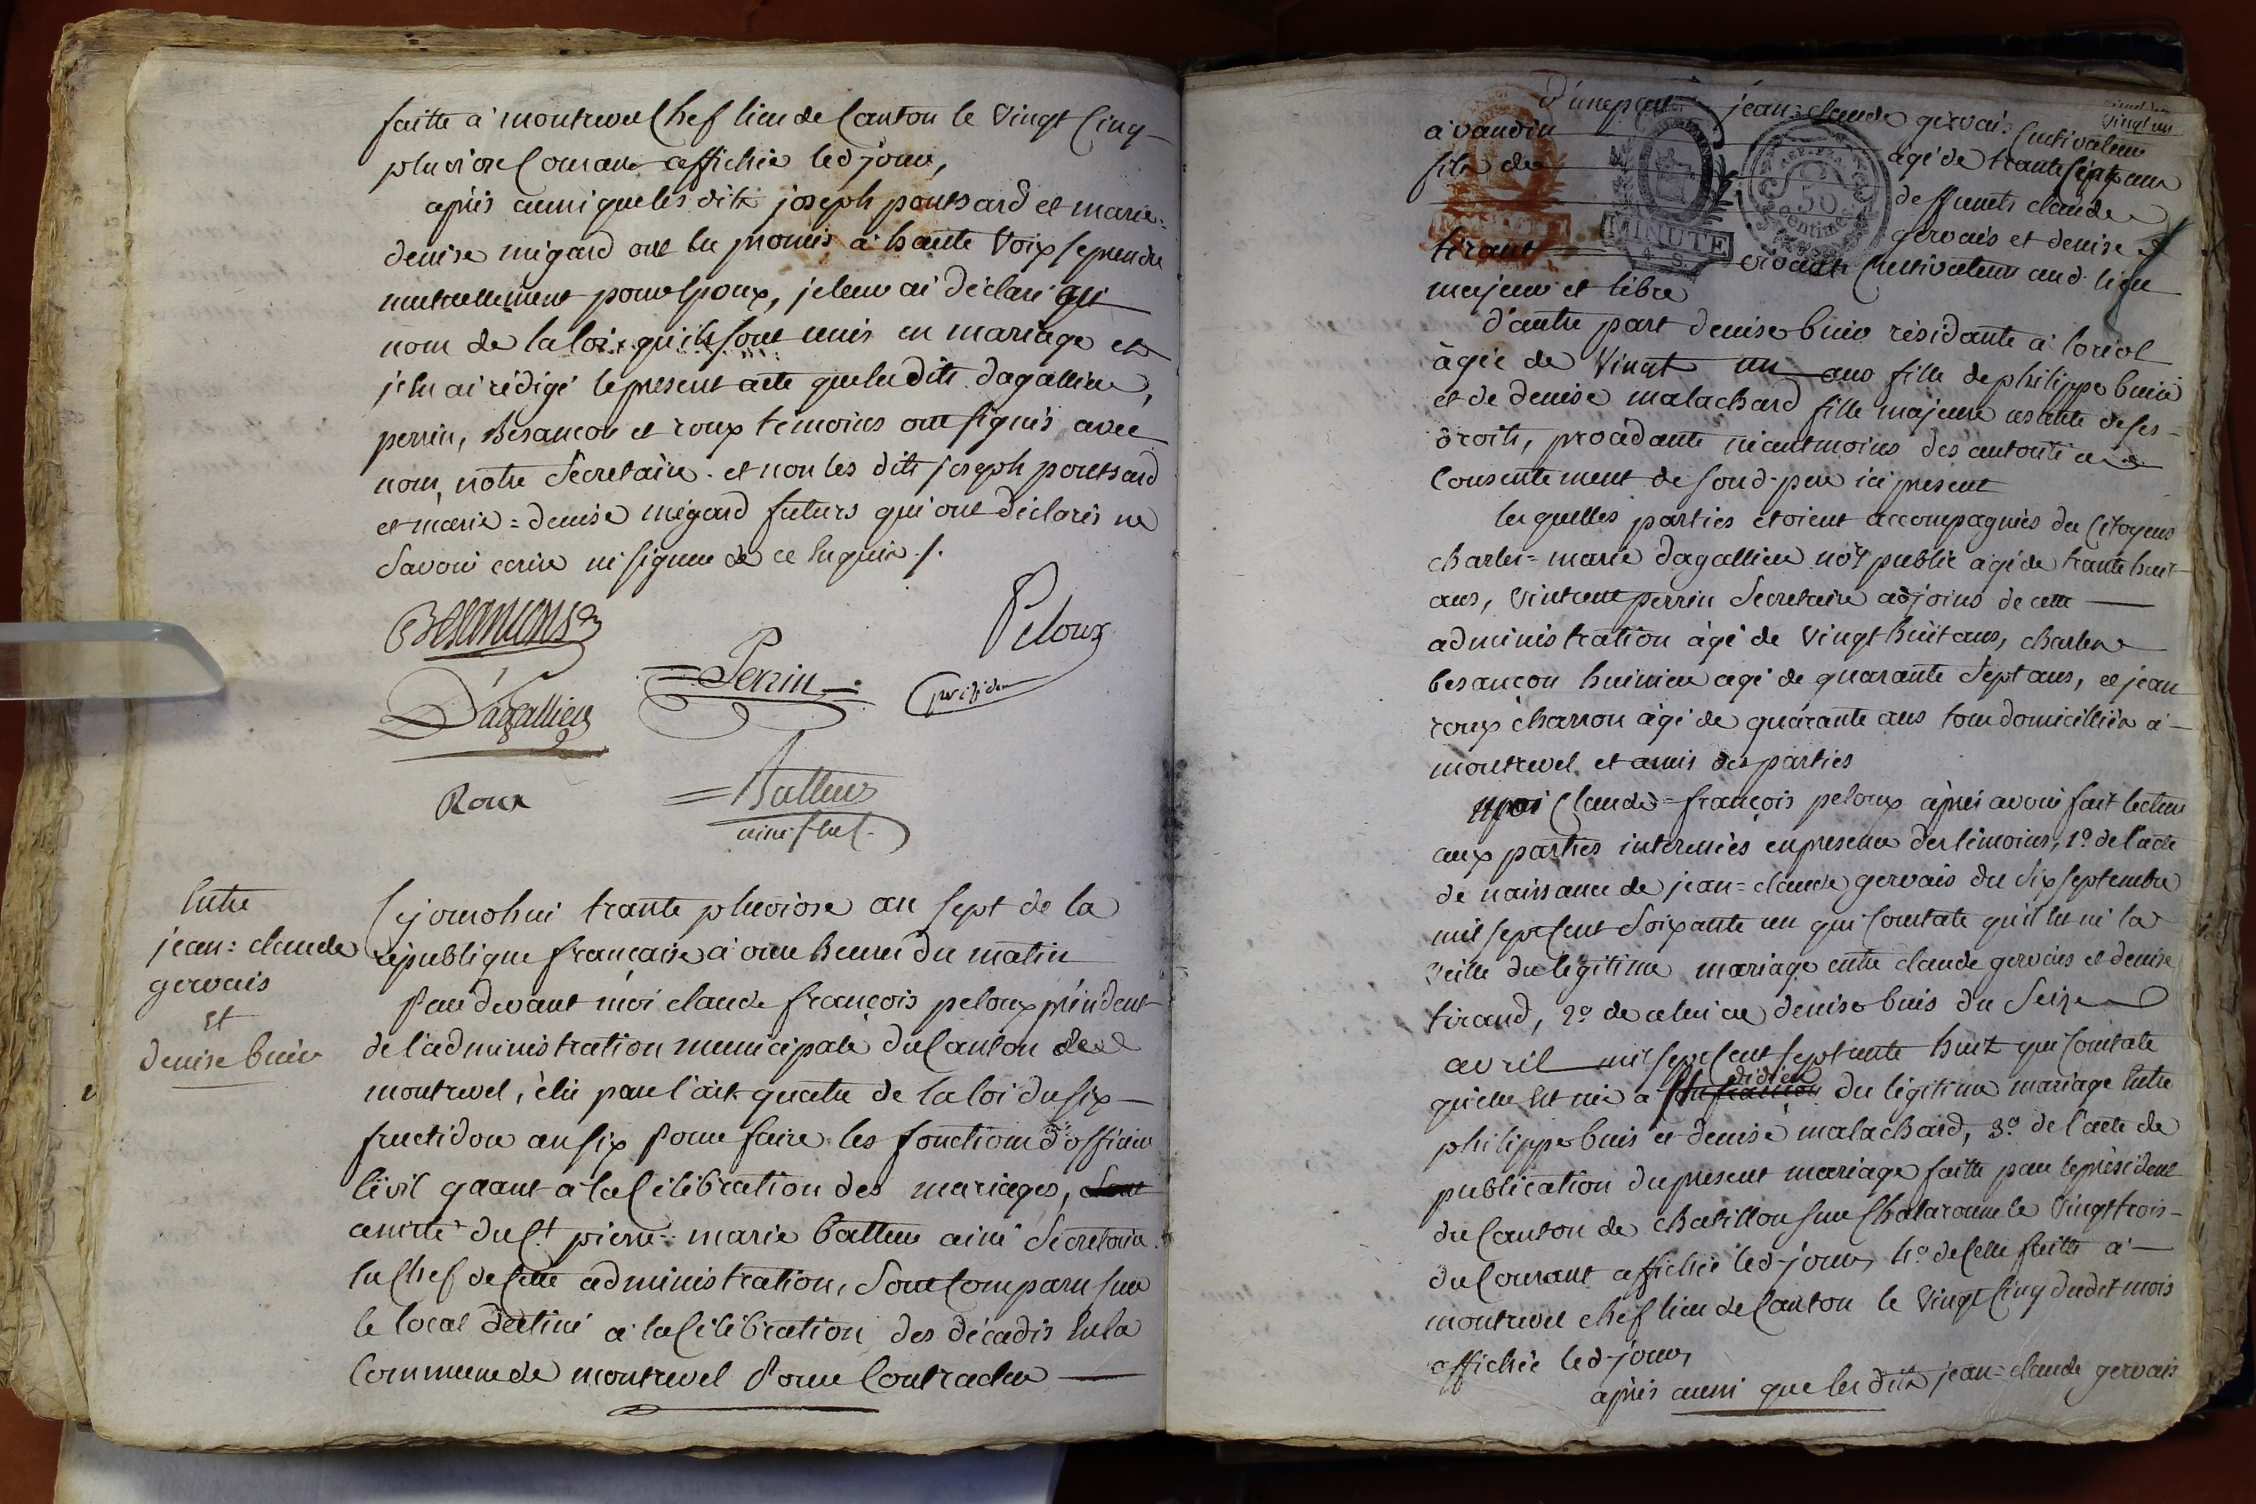 faitte a montrevel Chef lieu de Canton le Vingt Cinq
pluviose Courant affichée led. jour,
après aussi que les dits joseph pontsard et marie=
denise mégard ont eu promis à haute Voix se prendre
mutuellement pour Epoux, je leur ai déclaré au
nom de la loi qu'ils sont unis en mariage et
j'en ai rédigé le present acte que les dits dagallier,
perrin, Besançon et roux témoins ont signés avec
nous, notre Sécretaire et non les dits joseph pontsard
et marie=denise mégard futurs qui ont déclarés ne
Savoir écrire ni signer de ce Enquis ./.
Besançons
Peloux
président
Perrin
Dagallier
Roux
Battur
ainé
Entre
jean=claude
gervais
Et
denise buis
Cejourdhui trante pluviose an sept de la
république française à onze heures du matin
Pardevant moi claude françois peloux président
de l'administration municipale du Canton de
montrevel, élu par l'art. quatre de la loi du six
fructidor an six Pour faire les fonctions d'officier
Civil quant à la Célébration des mariages,
assisté du Ct. pierre=marie battur ainé Sécretaire
En Chef de Cette administration, Sont Comparu sur
le local destiné à la Célébration des décadis En la
Commune de montrevel Pour Contracter
d'une part jean=claude gervais Cultivateur
vingt un
à vandin agé de trante sept ans
fils de deffunts claude
gervais et denise
tirant vivants Cultivateurs aud. lieu
majeur et libre
d'autre part denise buis résidante à loriol
âgée de Vingt un ans fille de philippe buis
et de denise malachard fille majeure usante de ses
droits, procédante néantmoins des autorité et
Consentement de sond. pere ici present
les quelles parties étoient accompagnés des Citoyens
charles=marie dagallier not. public âgé de trante huit
ans, Vintcent perrin Sécretaire adjoins de cette
administration âgé de Vingt huit ans, charles
besançon huissier agé de quarante Sept ans, et jean
roux charron âgé de quarante ans tous domicilliés a
montrevel et amis des parties
moi Claude=françois peloux après avoir fait lecture
aux parties interessées en presence des témoins, 1o. de l'acte
de naissance de jean=claude gervais du six septembre
mil sept Cent Soixante un qui Constate qu'il Est né la
Veille du légitime mariage entre claude gervais et denise
tirand, 2o. de celui de denise buis du Seize
avril mil sept Cent septante huit qui Constate
didier
qu'elle Est née à du légitime mariage Entre
philippe buis et denise malachard, 3o. de l'acte de
publication du present mariage faitte par le président
du Canton de chatillon sur Chalaronne le Vingt trois
du Courant affichée led. jour, 4o. de Celle faitte à
montrevel chef lieu de Canton le Vingt Cinq dudit mois
affichée led. jour,
après aussi que les dits jean=claude gervais
MINUTE
50
Centimes